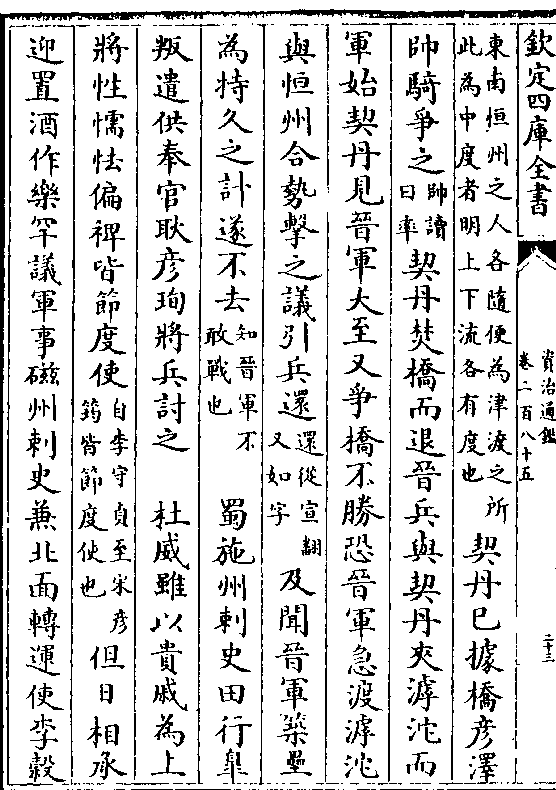 欽定四庫全書
資治通鑑
卷二百八十五
二十三
東南恒州之人各隨便為津渡之所
此為中度者明上下流各有度也
契丹已據橋彦澤
帥騎争之帥讀曰率契丹焚橋而退晉兵與契丹夾滹沱而
軍始契丹見晉軍大至又爭橋不勝恐晉軍急渡滹沱
與恒州合勢擊之議引兵還還從宣翻又如字及聞晉軍築壘
為持久之計遂不去知晉軍不敢戰也 蜀施州刺史田行臯
叛遣供奉官耿彦珣將兵討之 杜威雖以貴戚為上
將性懦怯偏裨皆節度使自李守貞至宋彦筠皆節度使也但日相承
迎置酒作樂罕議軍事磁州刺史兼北面轉運使李穀